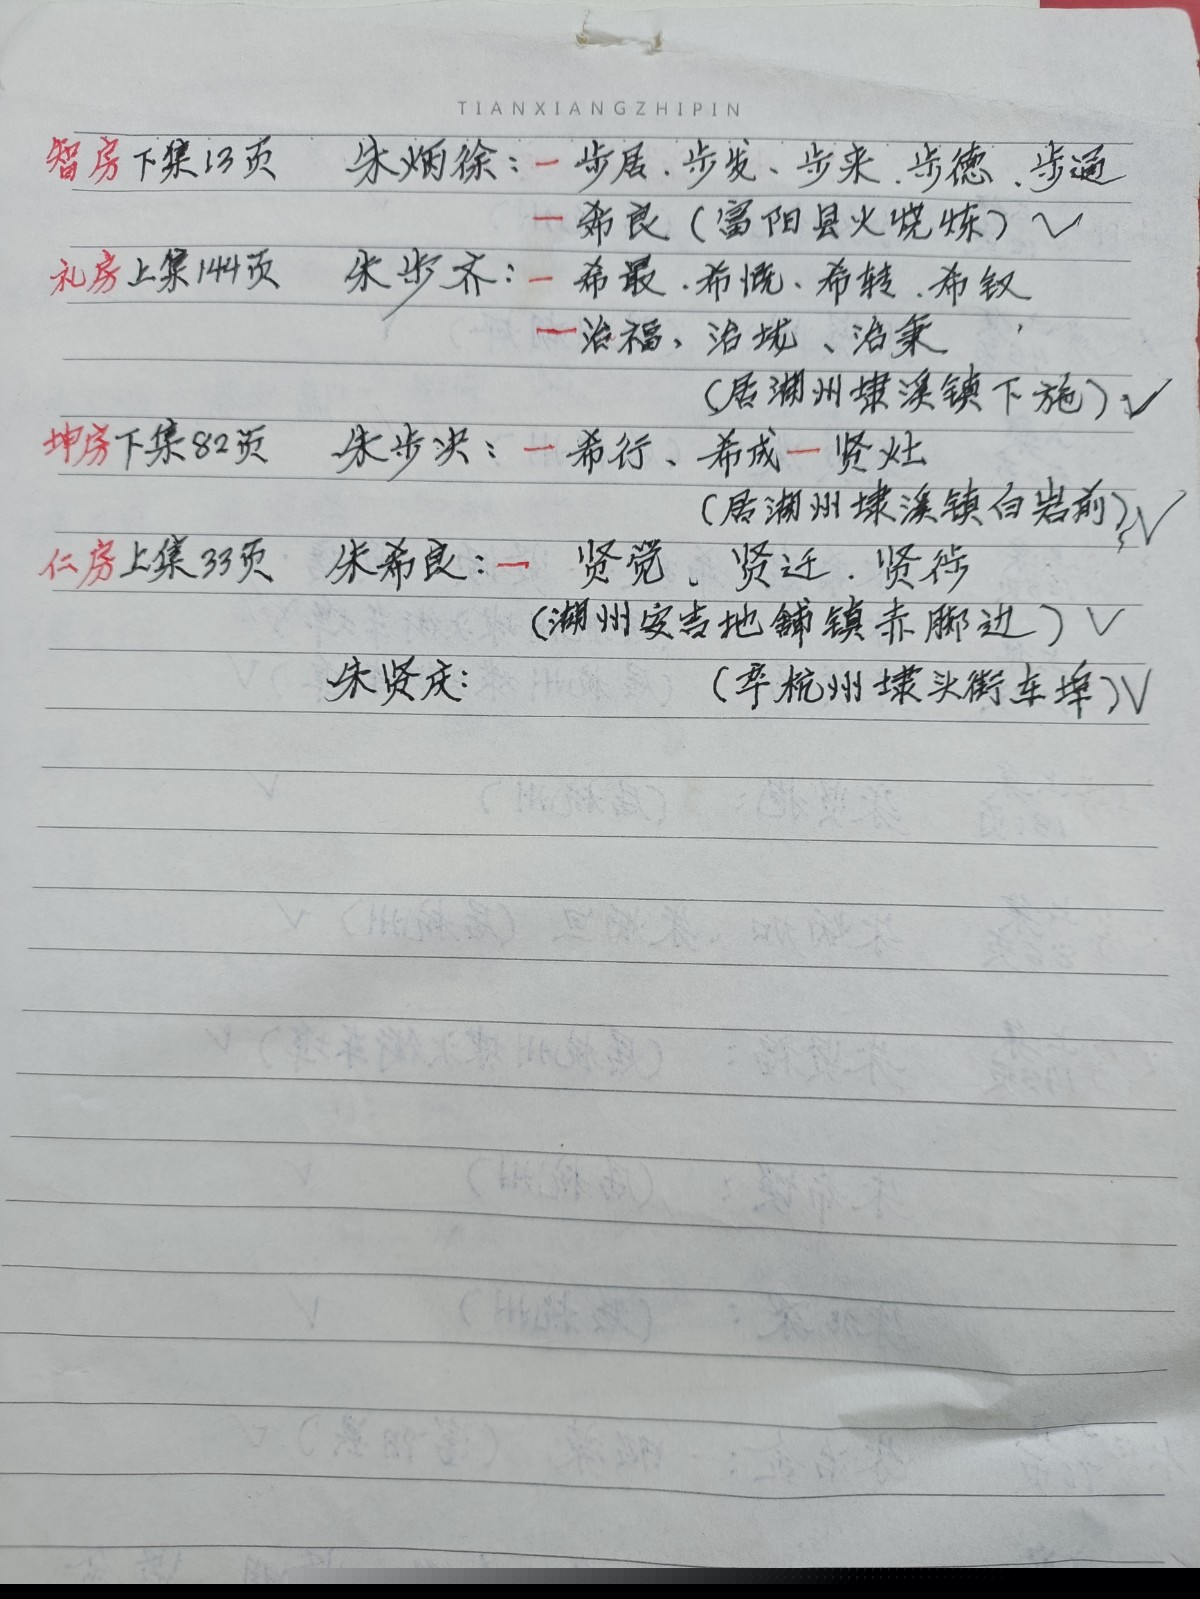 TIANXIANGZHIPIN
智房下集13页 朱炳徐:一步居、步发、步来、步德、步通
一希良(富阳县火烧炼)✓
礼房上集144页 朱步齐:一希最、希慨、希转、希钗
一治福、治垅、治秉
(居湖州埭溪镇下施)✓
坤房下集82页 朱步决:一希行、希成一贤灶
(居湖州埭溪镇白岩前)✓
仁房上集33页 朱希良:一 贤党、贤迁、贤待
(湖州安吉地铺镇赤脚边)✓
朱贤庆: (卒杭州埭头街车埠)✓